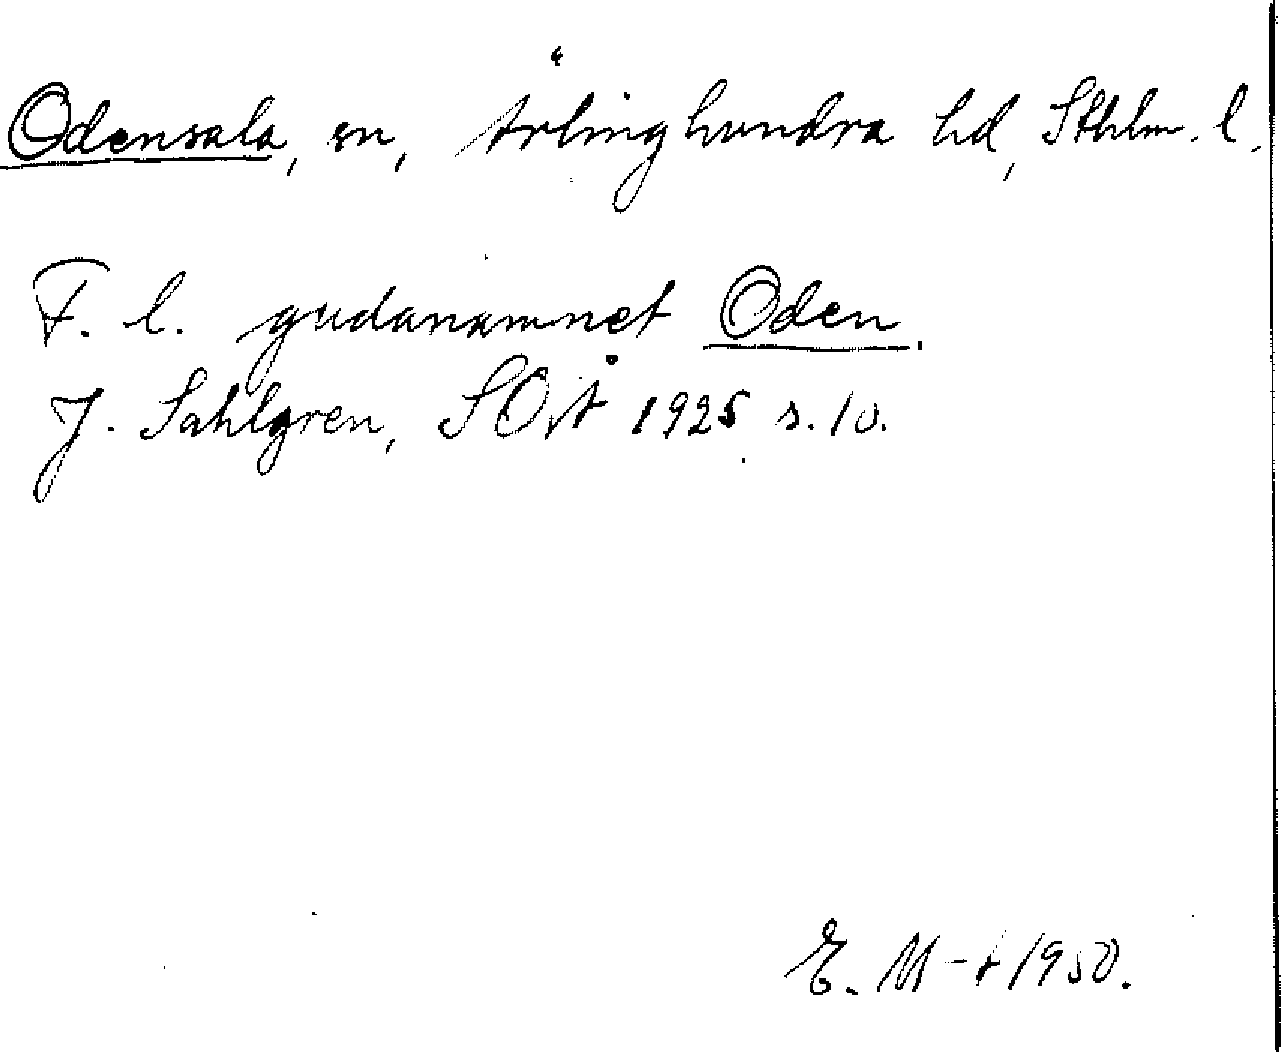 Odensala, sn, Ärlinghundra hd, Sthlm. l.
F. l. gudanamnet Oden.
J. Sahlgren, SOÅ 1925 s. 10.
E. M-t 1950.